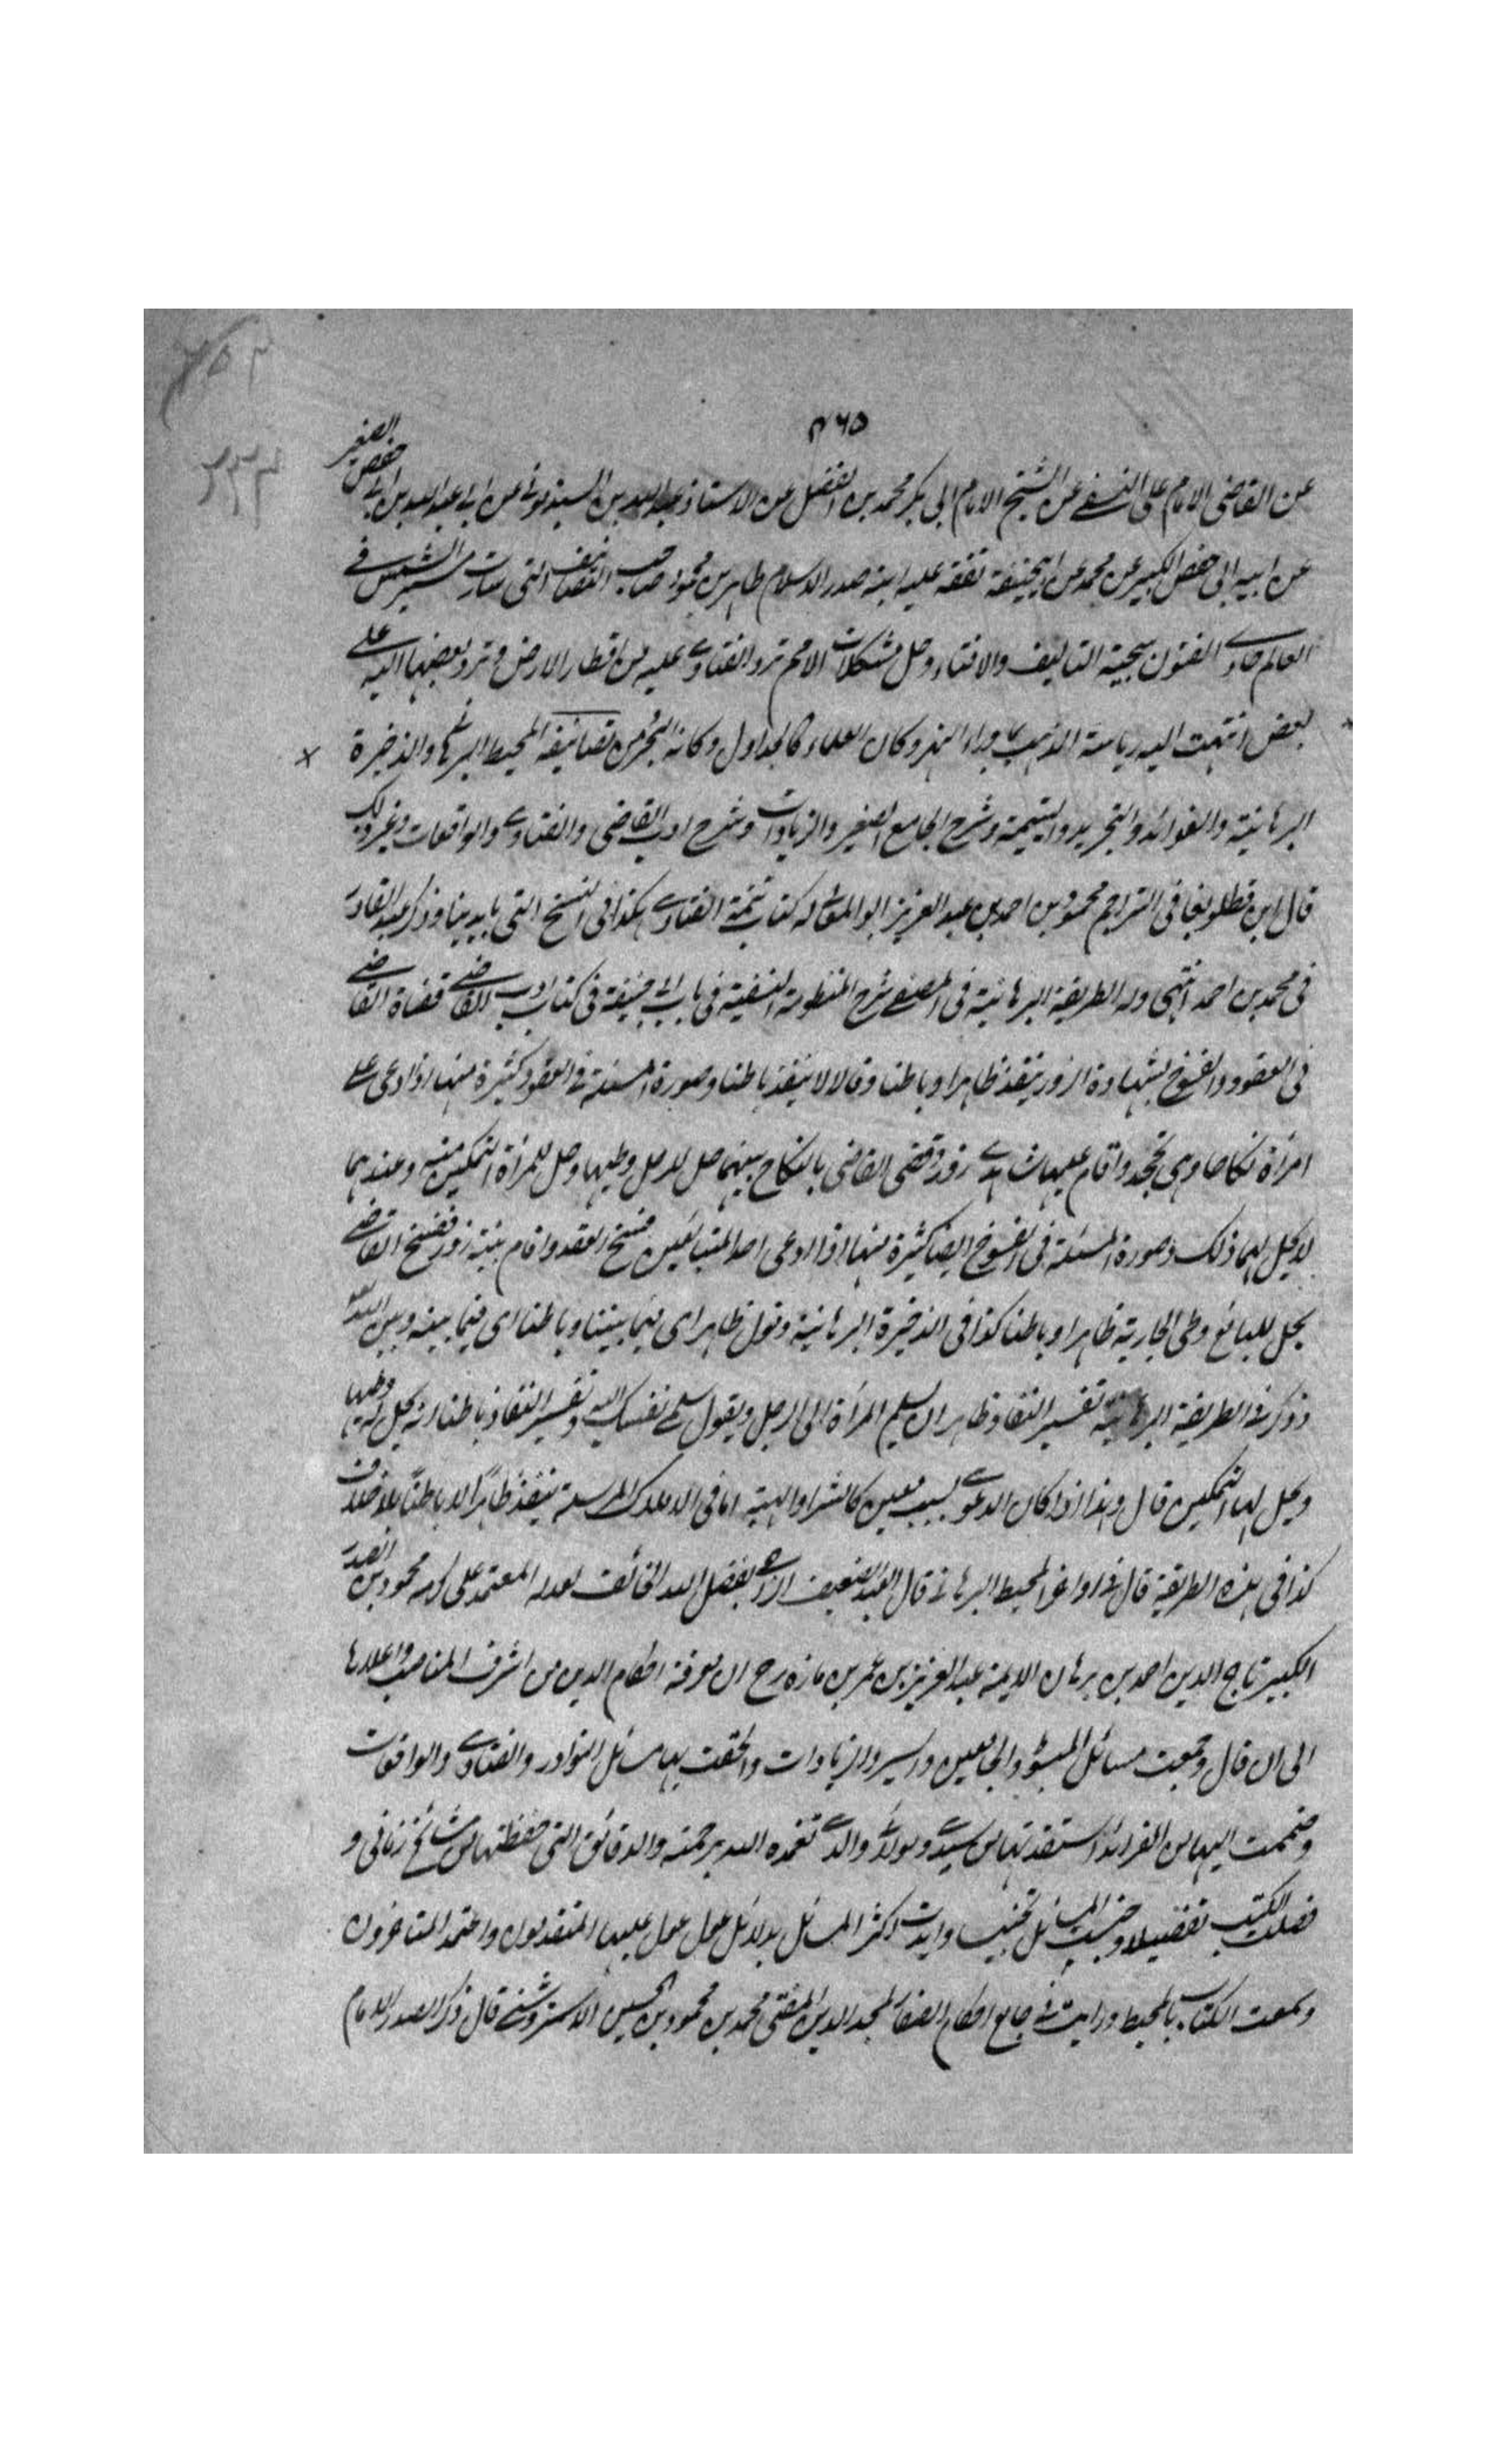 ٤٦٥
عن القاضى الامام على النسفى عن الشيخ الامام ابى بكر محمد بن الفضل عن الاستاذ عبد الله بن السبذمونى عن ابى عبد الله بن ابى حفص الصغير
عن ابيه ابى حفص الكبير عن محمد عن ابيحنيفة تفقه عليه ابنه صدر الاسلام طاهر بن محمود صاحب التصانيف التى سارت سير الشمس فى
العالم حاوى الفنون سجية التاليف والافتاء وحل مشكلات الامم ترد الفتاوى عليه من اقطار الارض وترد بعضها اليه على
بعض انتهت اليه رياسة المذهب بما وراء النهر وكان العلماء كالجداول وكانه البحر من تصانيفه المحيط البرهانى والذخيرة
البرهانية والفوائد والتجريد واليتيمة وشرح الجامع الصغير والزيادات وشرح ادب القاضى والفتاوى والواقعات وغير ذلك
قال ابن قطلوبغا فى التراجم محمود بن احمد بن عبد العزيز ابو المعالى له كتاب تتمة الفتاوى هكذا فى النسخ التى بايدينا وذكر عبد القادر
فى محمد بن احمد انتهى وله الطريقة البرهانية فى المصفى شرح المنظومة النسفية فى باب ابى حنيفة فى كتاب ادب القاضى قضاء القاضى
فى العقود والفسوخ بشهادة الزور ينفذ ظاهرا وباطنا وقالا لا ينفذ باطنا وصورة المسئلة فى العقود كثيرة منها اذا ادعى على
امرأة نكاحا وهى تجحد واقام عليها شاهدى زور وقضى القاضى بالنكاح بينهما حل للرجل وطيها وحل للمرأة التمكين منه وعندهما
لا يحل لهما ذلك وصورة المسئلة فى الفسوخ ايضا كثيرة منها اذا ادعى احد المتبايعين فسخ العقد واقام بينة زور ففسخ القاضى
يحل للبائع وطى الجارية ظاهرا وباطنا كذا فى الذخيرة البرهانية وقوله ظاهرا اى فيما بيننا وباطنا اى فيما بينه وبين الله
وذكر فى الطريقة البرهانية تفسير النفاذ ظاهرا ان يسلم المرأة الى الرجل ويقول سلمى نفسك اليه وتفسير النفاذ باطنا انه يحل له وطيها
ويحل لها التمكين قال وهذا اذا كان الدعوى بسبب معين كالشراء والهبة اما فى الاملاك المرسلة ينفذ ظاهرا لا باطنا بلا خلاف
كذا فى هذه الطريقة قال فى اوائل المحيط البرهانى قال العبد الضعيف الراجى بفضل الله الخائف لعدله المعتمد على كرمه محمود بن الصدر
الكبير تاج الدين احمد بن برهان الايمة عبد العزيز بن عمر بن مازه رح ان معرفة احكام الدين من اشرف المناصب واعلاها
الى ان قال وجمعت مسائل المبسوط والجامعين والسير والزيادات والحقت بها مسائل النوادر والفتاوى والواقعات
وضممت اليها من الفوائد استفدتها من سيدى ومولاى والدى تغمده الله برحمته والدقائق التى حفظتها من مشائخ زمانى و
فصلت الكتب تفصيلا وجنست المسائل تجنيسا وايدت اكثر المسائل بدلائل عول عليها المتقدمون واعتمد المتاخرون
وسميت الكتاب بالمحيط ورايت فى جامع احكام الصغار لمجد الدين المفتى محمد بن محمود بن الحسين الاستروشنى قال ذكر الصدر الامام